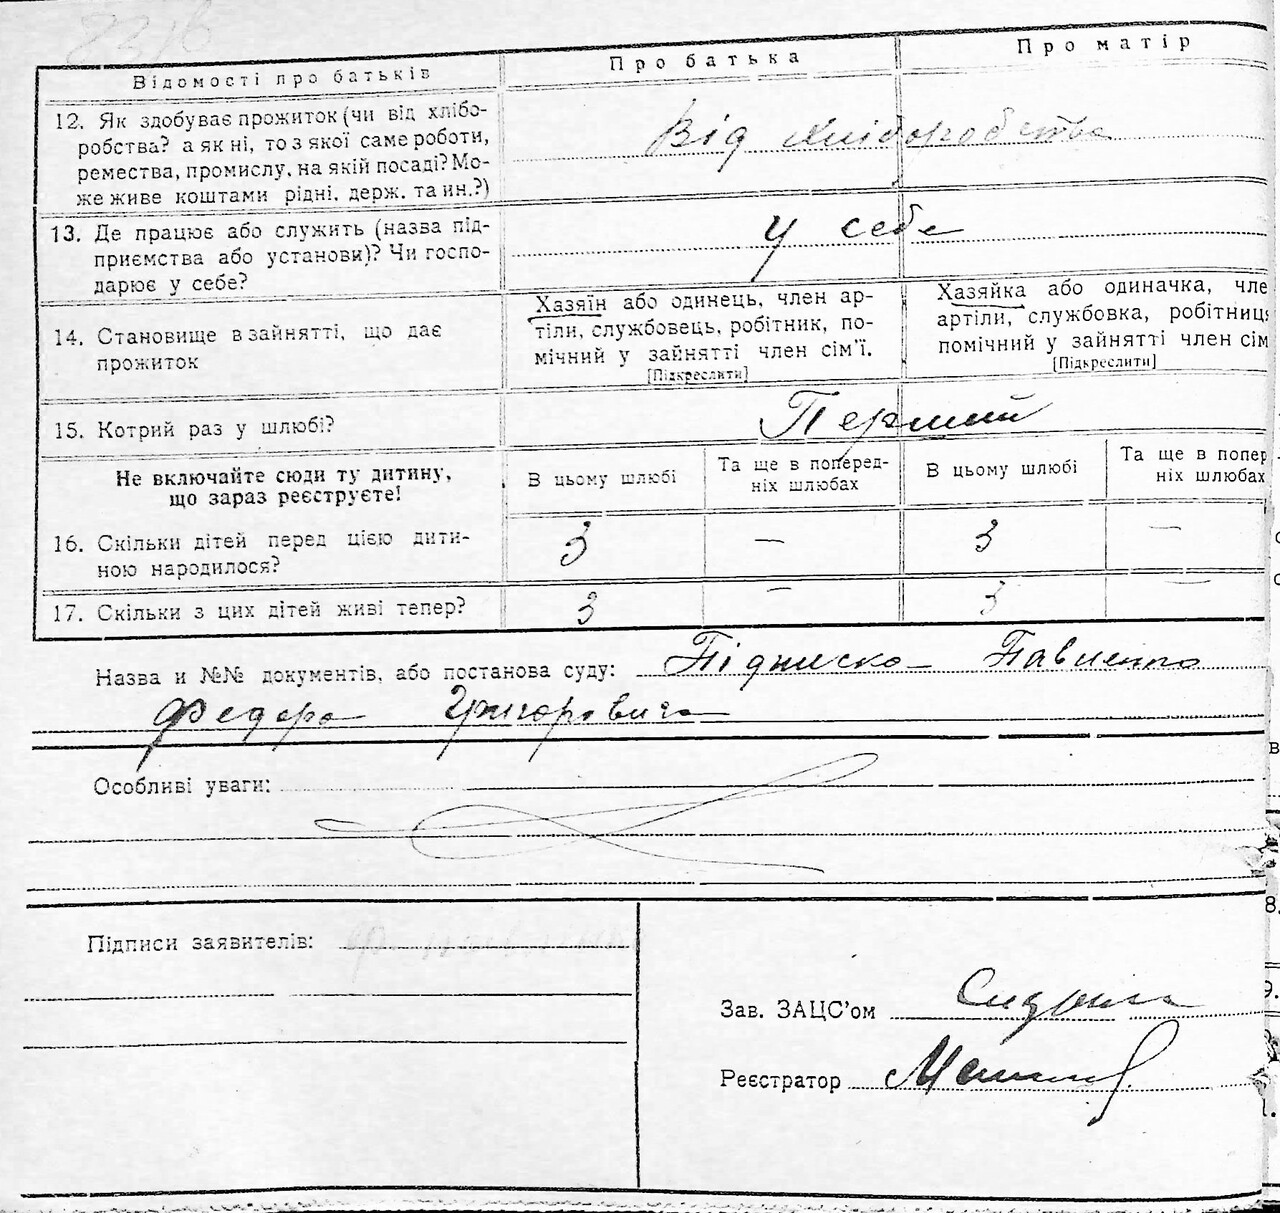 Відомості про батьків
Про батька
Про матір
12. Як здобуває прожиток (чи від хлібо-
робства? а як ні, то з якої саме роботи,
ремества, промислу, на якій посаді? Мо-
же живе коштами рідні, держ. та ин.?)
Від хліборобства
13. Де працює або служить (назва під-
приємства або установи)? Чи госпо-
дарює у себе?
у себе
14. Становище в зайнятті, що дає
прожиток
Хазяїн або одинець, член ар-
тіли, службовець, робітник, по-
мічний у зайнятті член сім'ї.
[Підкреслити]
Хазяйка або одиначка, чле
артіли, службовка, робітниц
помічний у зайнятті член сім
[Підкреслити]
15. Котрий раз у шлюбі?
Перший
Не включайте сюди ту дитину,
що зараз реєструєте!
В цьому шлюбі
Та ще в поперед-
ніх шлюбах
В цьому шлюбі
Та ще в попер
ніх шлюбах
16. Скільки дітей перед цією дити-
ною народилося?
3 — 3 —
17. Скільки з цих дітей живі тепер?
3 — 3 —
Назва и №№ документів, або постанова суду: Підписка Павленко
Федора Григоровича
Особливі уваги:
Підписи заявителів:
Зав. ЗАЦС'ом
Реєстратор